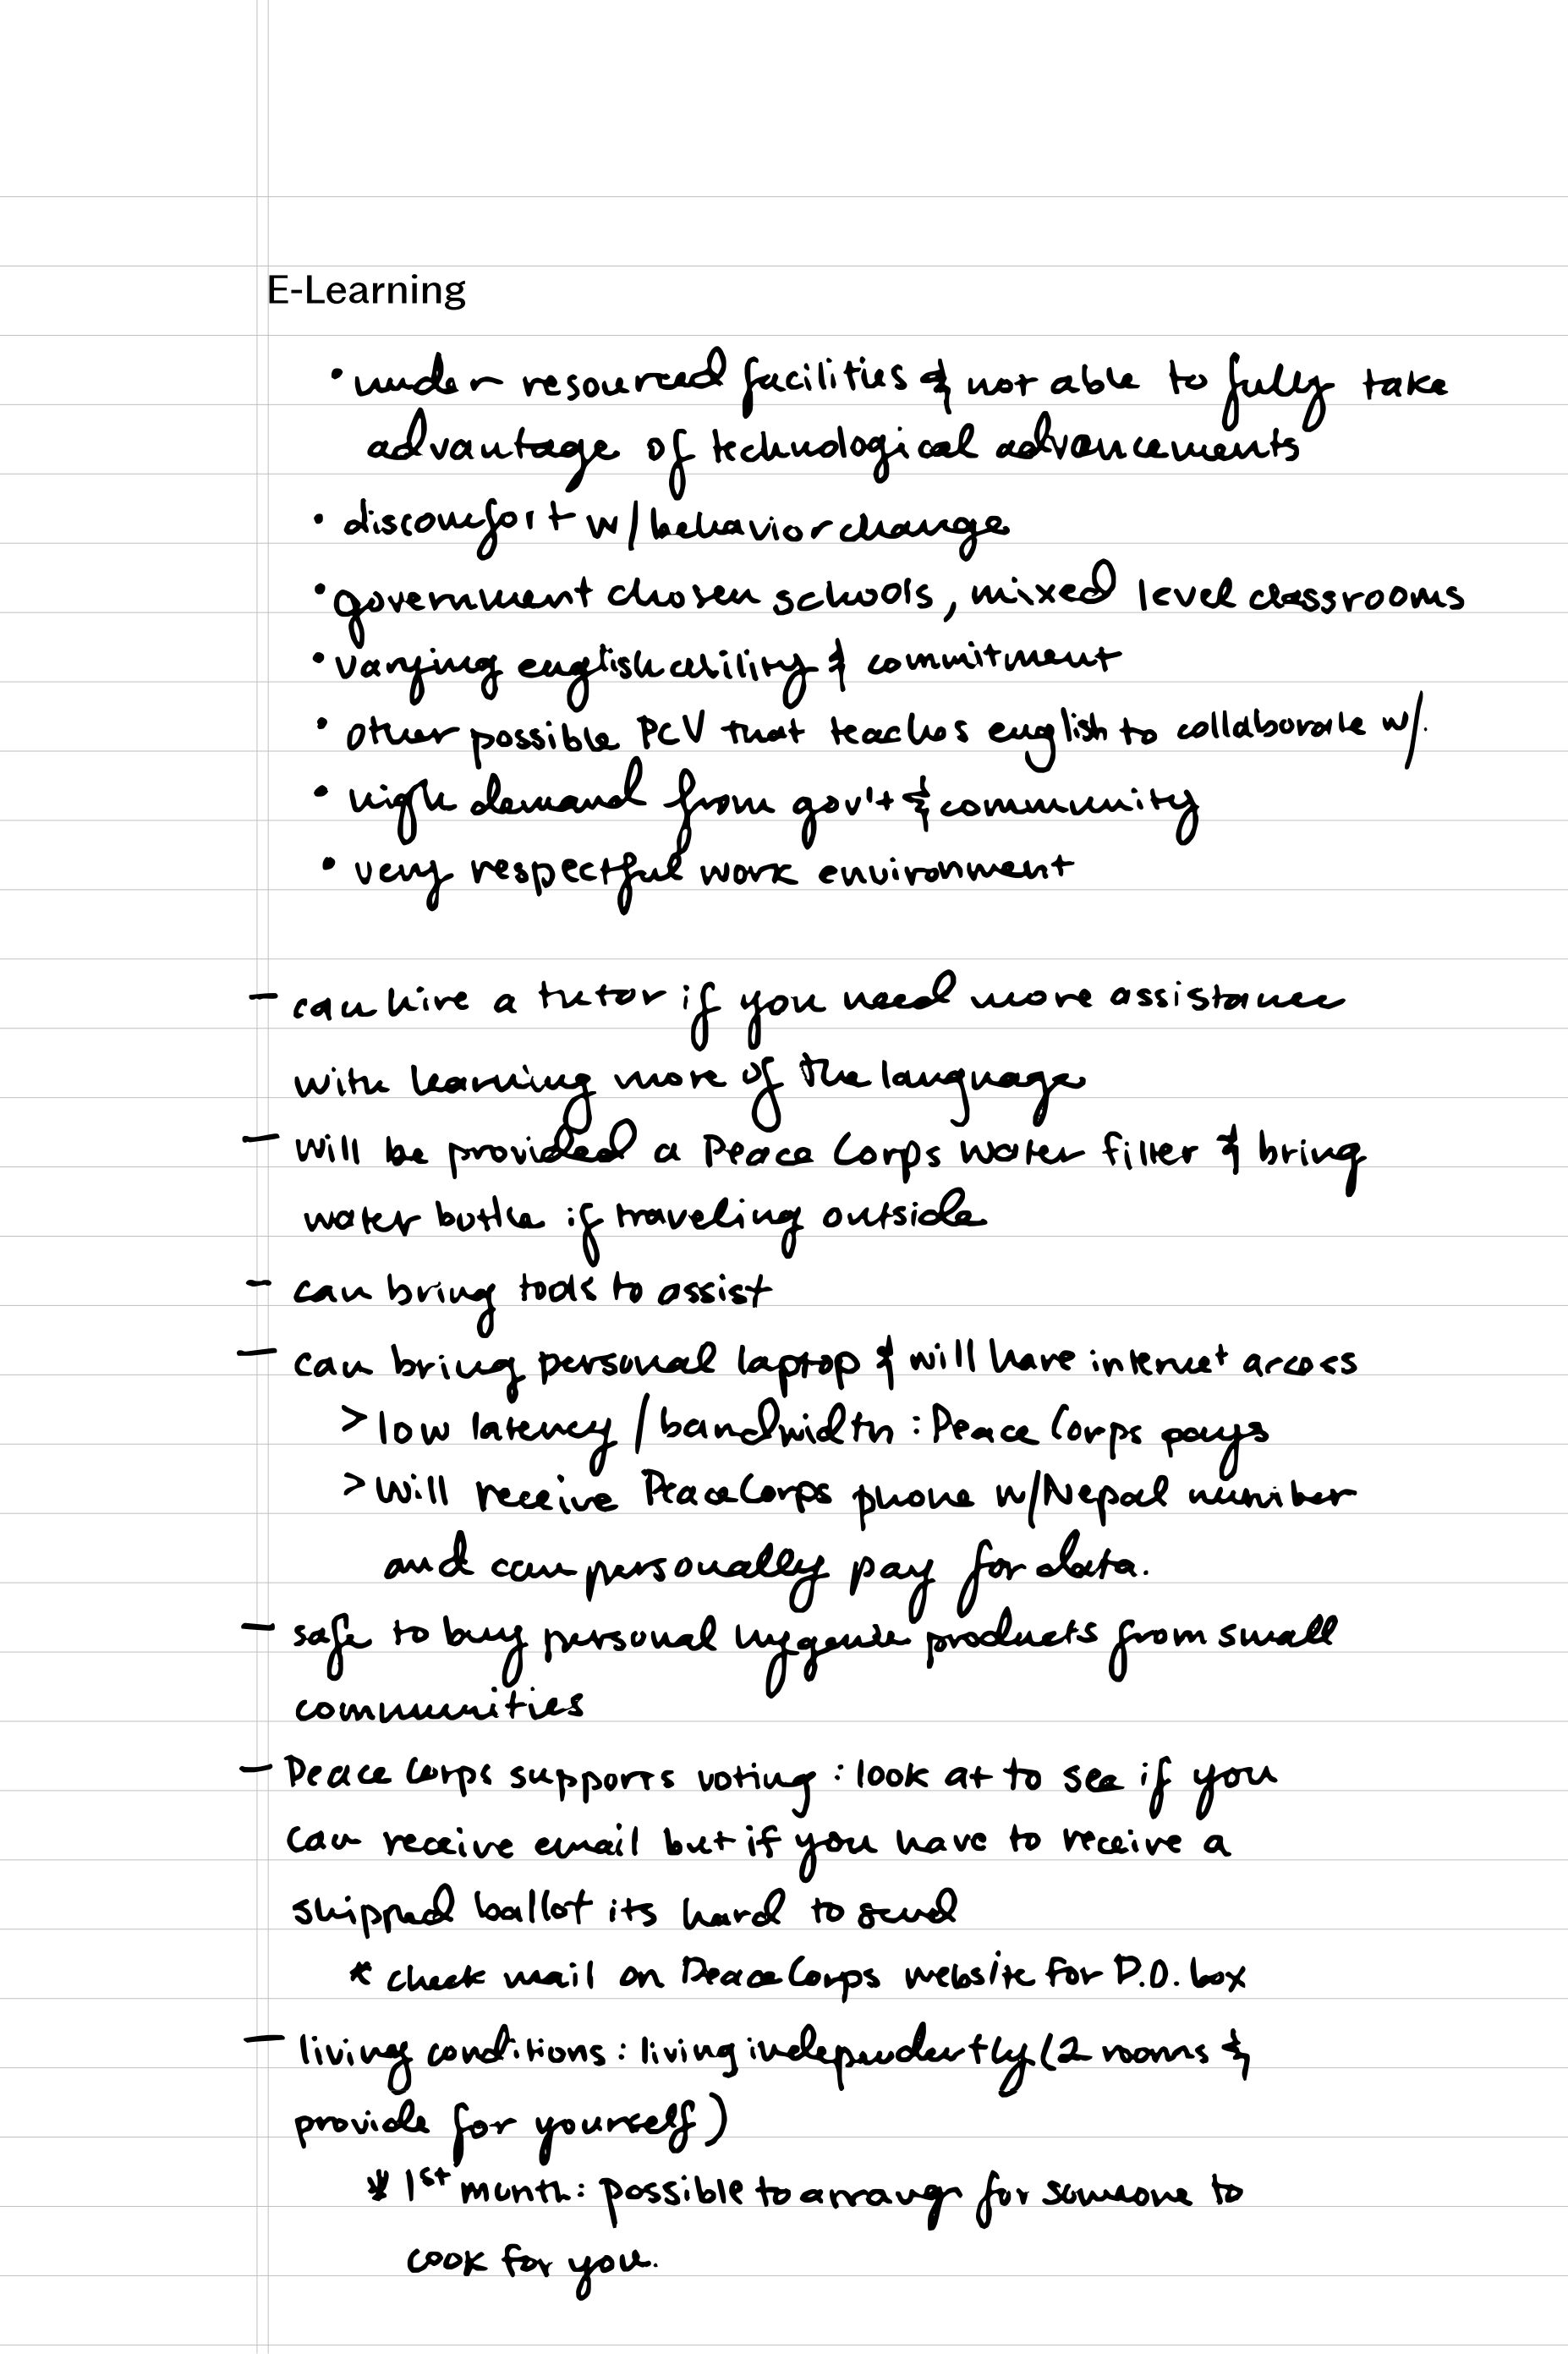 E-Learning
• under resourced facilities & not able to fully take
advantage of technological advancements
• discomfort w/ behavior change
• government chosen schools, mixed level classrooms
• varying english ability & commitment
• other possible PCV that teaches english to collaborate w/.
• high demand from gov't & community
• very respectful work environment
- can hire a tutor if you need more assistance
with learning more of the language
- will be provided a Peace Corps water filter & bring
water bottle if traveling outside
- can bring tools to assist
- can bring personal laptop & will have internet access
> low latency / bandwidth : Peace Corps pays
> will receive Peace Corps phone w/ Nepal number
and can personally pay for data.
- safe to buy personal hygenie products from small
communities
- Peace Corps supports voting : look at to see if you
can receive email but if you have to receive a
shipped ballot its hard to send
* check mail on Peace Corps website for P.O. box
- living conditions : living independently (2 rooms &
provide for yourself)
* 1st month : possible to arrange for someone to
cook for you.